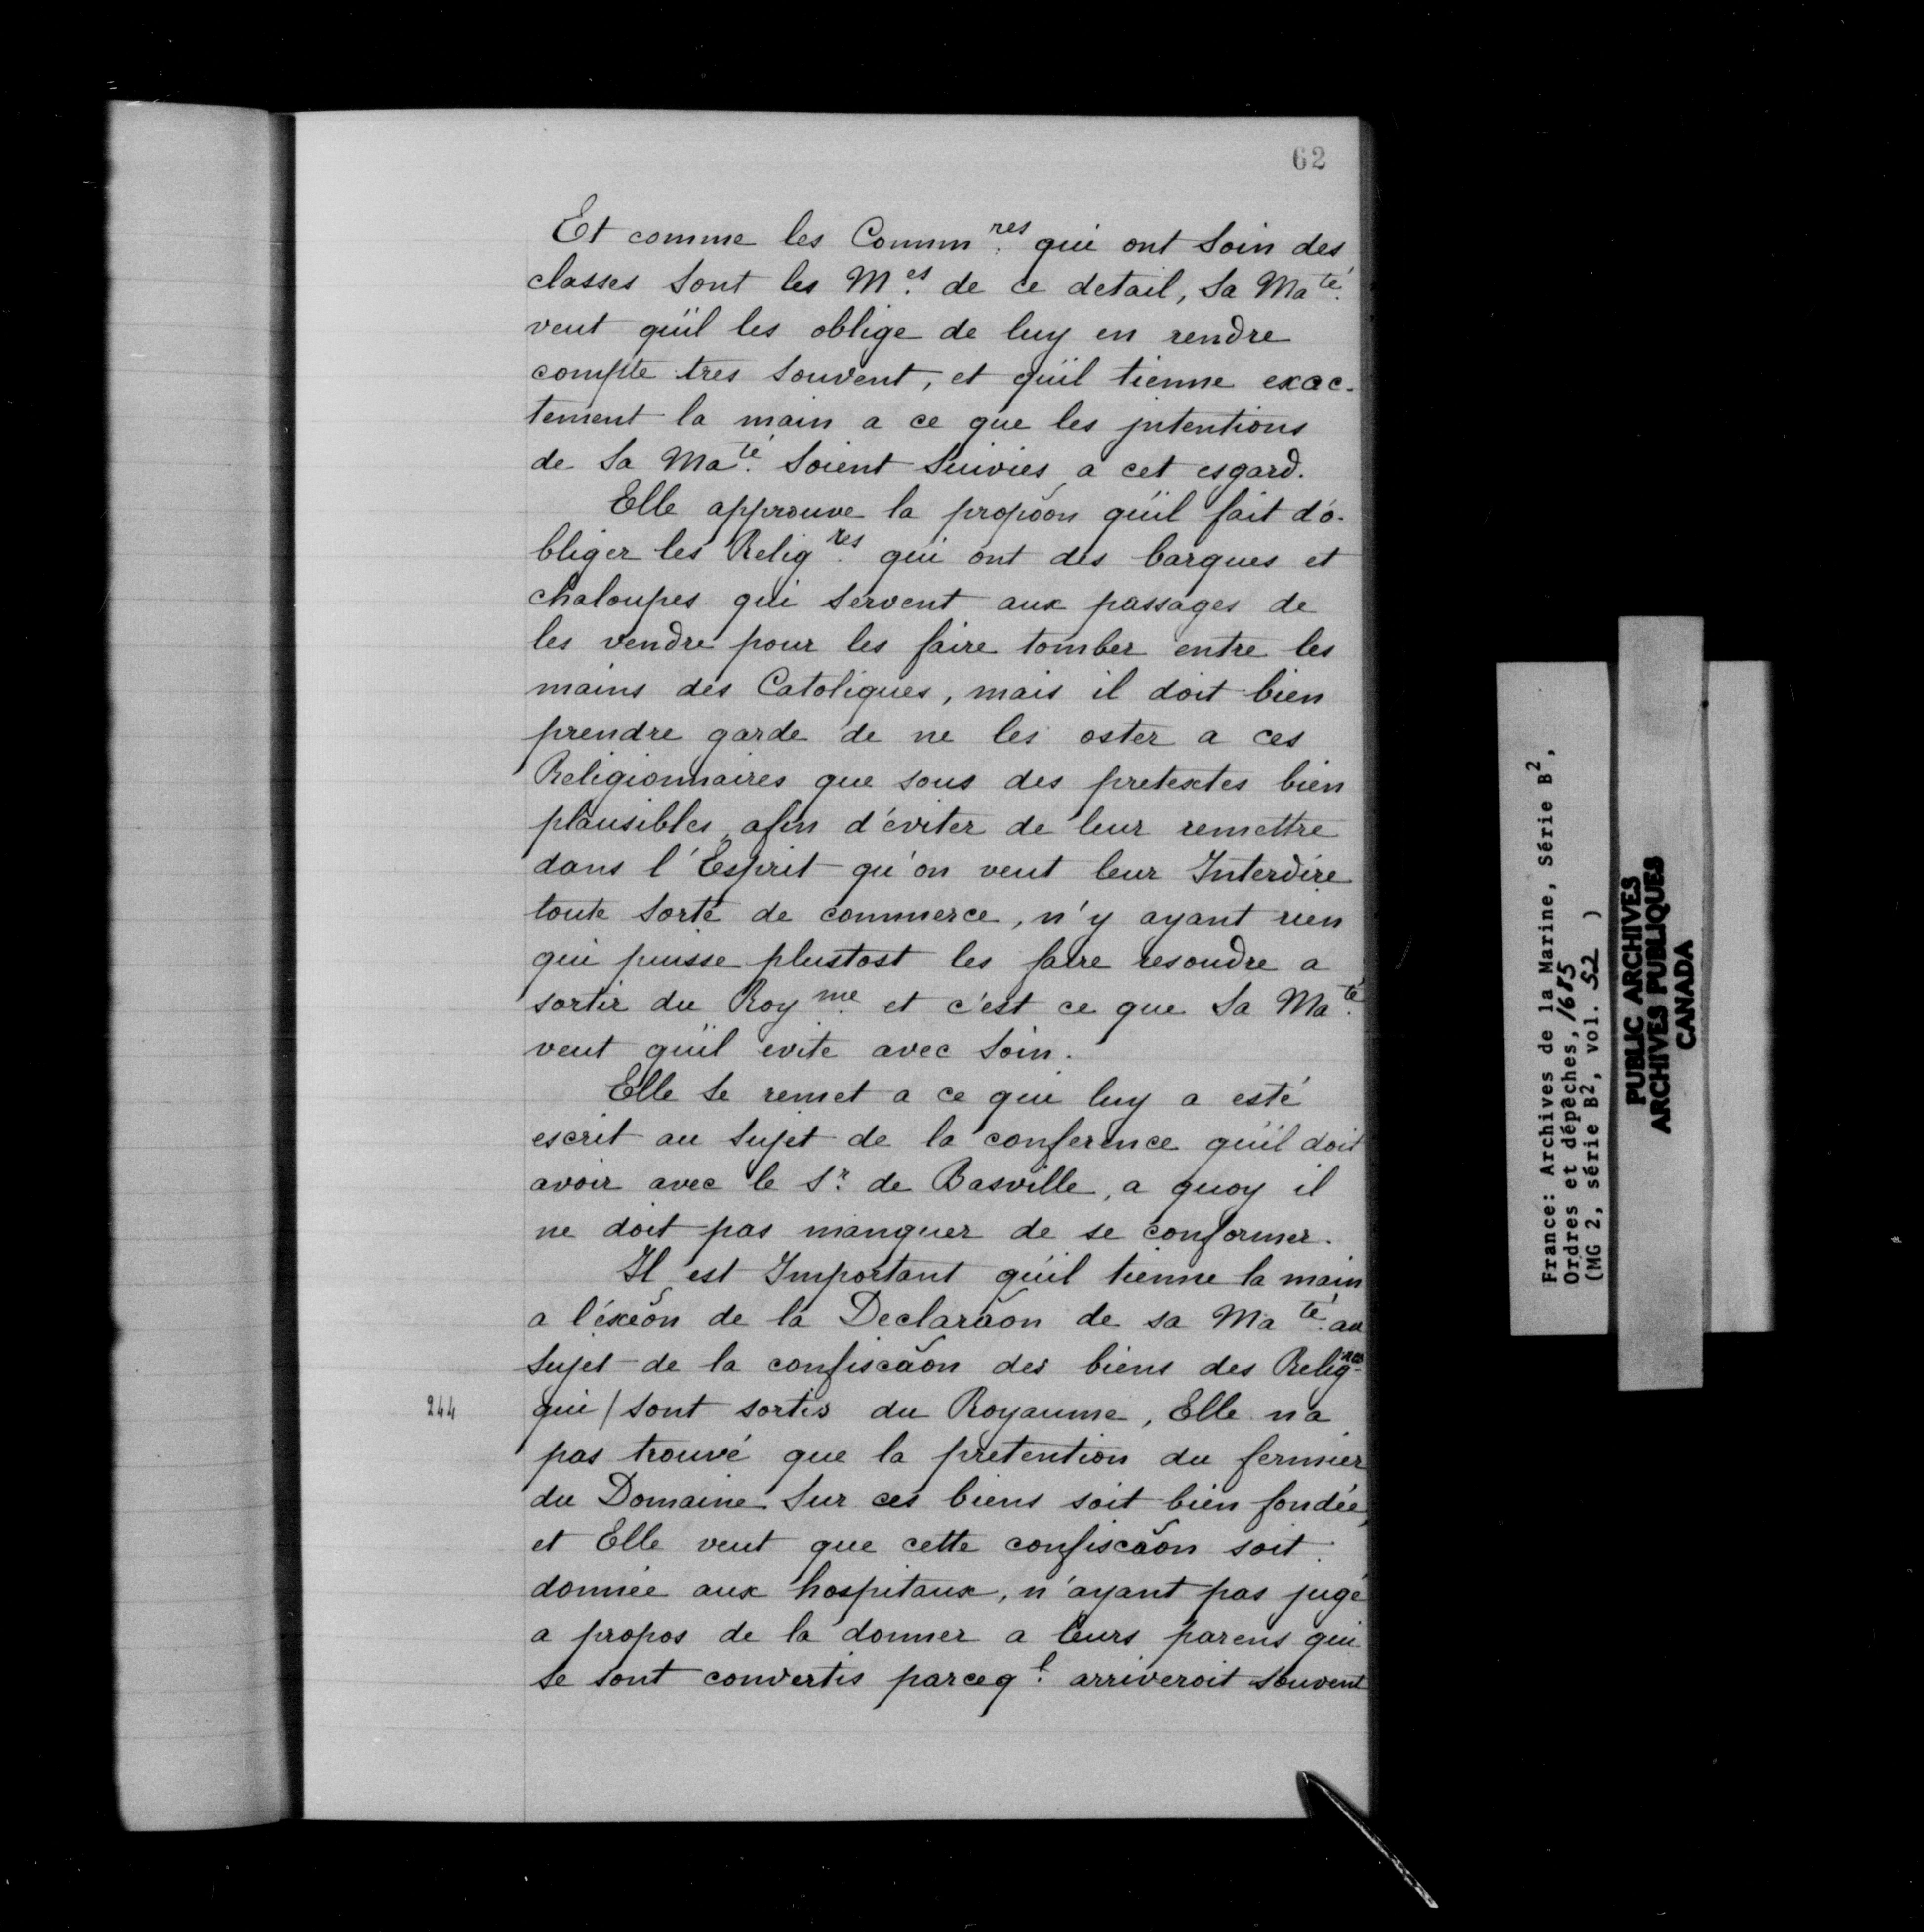 62
Et comme les Comm.res qui ont soin des
classes sont les M.es de ce detail, sa Ma.té
veut qu'il les oblige de luy en rendre
compte tres souvent, et qu'il tienne exac-
tement la main a ce que les jntentions
de sa Ma.té soient suivies a cet esgard.
Elle approuve la propõon qu'il fait d'o-
bliger les Relig.res qui ont des barques et
chaloupes qui servent aux passages de
les vendre pour les faire tomber entre les
mains des Catoliques, mais il doit bien
prendre garde de ne les oster a ces
Religionnaires que sous des pretextes bien
plausibles, afin d'éviter de leur remettre
dans l'Esprit qu'on veut leur Interdire
toute sorte de commerce, n'y ayant rien
qui puisse plustost les faire resoudre a
sortir du Roy.me et c'est ce que sa Ma.té
veut qu'il evite avec soin.
Elle se remet a ce qui luy a esté
escrit au sujet de la conference qu'il doit
avoir avec le S.r de Basville, a quoy il
ne doit pas manquer de se conformer.
Il est Important qu'il tienne la main
a l'éxeõn de la Declarãon de sa Ma.té au
sujet de la confiscãon des biens des Relig.res
244 qui / sont sortis du Royaume, Elle n'a
pas trouvé que la pretention du fermier
du Domaine sur ces biens soit bien fondée,
et Elle veut que cette confiscãon soit
donnée aux hospitaux, n'ayant pas jugé
a propos de la donner a leurs parens qui
se sont convertis parceq.l arriveroit souvent
France: Archives de la Marine, Série B2,
Ordres et dépêches, 1685
(MG 2, série B2, vol. 52 )
PUBLIC ARCHIVES
ARCHIVES PUBLIQUES
CANADA